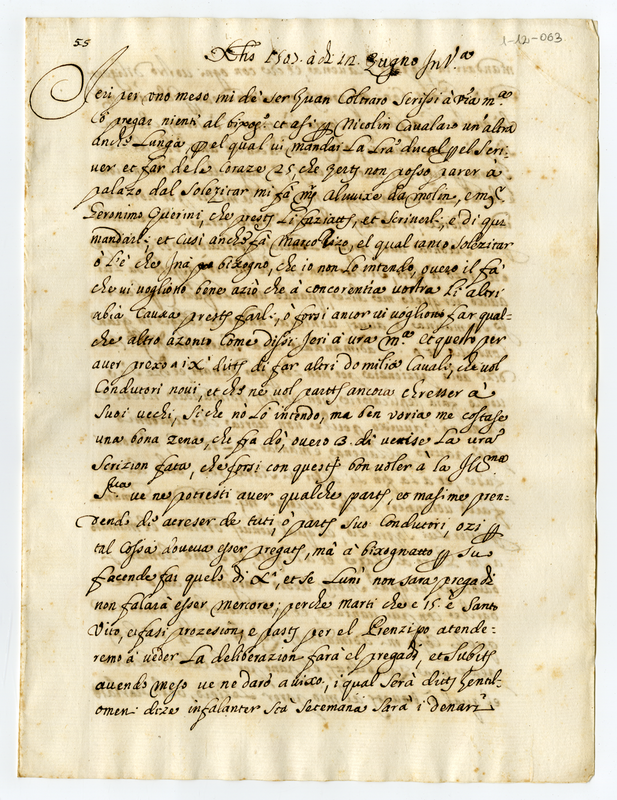 55
1-12-063
Xhs 1507. à dì 12 Zugno In V.a
Ieri per uno meso mi dè Ser Zuan Coltraro scrissi à v'ra m.a
pregar nienti al bixog.o et asi Nicolin Cavalaro un'altra
Lunga, el qual vi mandai La l'ra ducal el Scri-
ver et far dele Coraze 25, che zerti non posso parer à
palazo dal Solezitar mi fà m. Aluuixe da molin, e m.
Geronimo Querini, che presti Li faziatti, et Scriverl., e di qui
mandarl.; et cusi anche fà Marco Rizo, el qual tanto Solezitar
ò L'è che Inà bixogno, che io non Lo intendo, overo il fà
che vi vogliono bene aziò che à concorentia vostra Li altri
abia Causa presti farl., ò forsi ancor vi vogliono far qual-
che altro azonto Come dissi Ieri à v'ra m.a et questo per
aver preso a i X.i ditti di far altri do milia Cavali, che vol
Condutori novi, et che ne vol parti ancora chresser à
Suoi vechi, Siche no Lo intendo, ma ben voria me costase
una bona zena, che fra dò, overo 3. dì venise La vra
Scrizion fata, che forsi con questi bon voler à la Ill.ma
S.ria ve ne potresti aver qualche parti, eo masime pren-
dendo di acreser de tuti, ò parti Suo Condutori, ozi
tal Cossa doveva esser pregati, mà à bixognatto Su
facende far quelo di X.i, et se Lunì non sara pregadi
non falarà esser mercore; perche marti che è 15. è Santo
Vito, e fasi prozesion, e pasti per el Prenzipo atende-
remo à veder La deliberazion farà el pregadi, et Subiti
avendo meso ve ne darò aviso, i qual Sarà ditti Zentil-
omeni dize infalanter Stà Setemana Sarà i denari